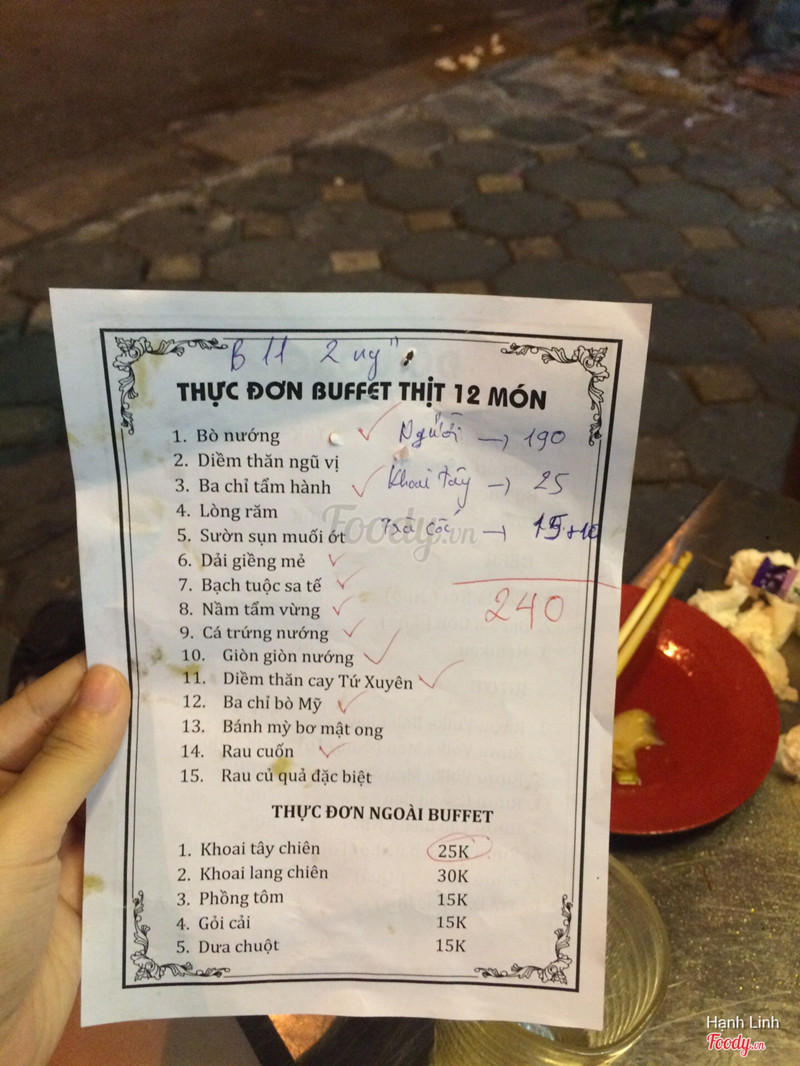 B 11 2 ng"
THỰC ĐƠN BUFFET THỊT 12 MÓN
1. Bò nướng
Người → 190
2. Diềm thăn ngũ vị
3. Ba chỉ tẩm hành
Khoai tây → 25
4. Lòng răm
5. Sườn sụn muối ớt
Trà cốc → 15+10
6. Dải giềng mẻ
7. Bạch tuộc sa tế
8. Nầm tẩm vừng
240
9. Cá trứng nướng
10. Giòn giòn nướng
11. Diềm thăn cay Tứ Xuyên
12. Ba chỉ bò Mỹ
13. Bánh mỳ bơ mật ong
14. Rau cuốn
15. Rau củ quả đặc biệt
THỰC ĐƠN NGOÀI BUFFET
1. Khoai tây chiên 25K
2. Khoai lang chiên 30K
3. Phồng tôm 15K
4. Gỏi cải 15K
5. Dưa chuột 15K
Foody.vn
Hanh Linh
Foody.vn